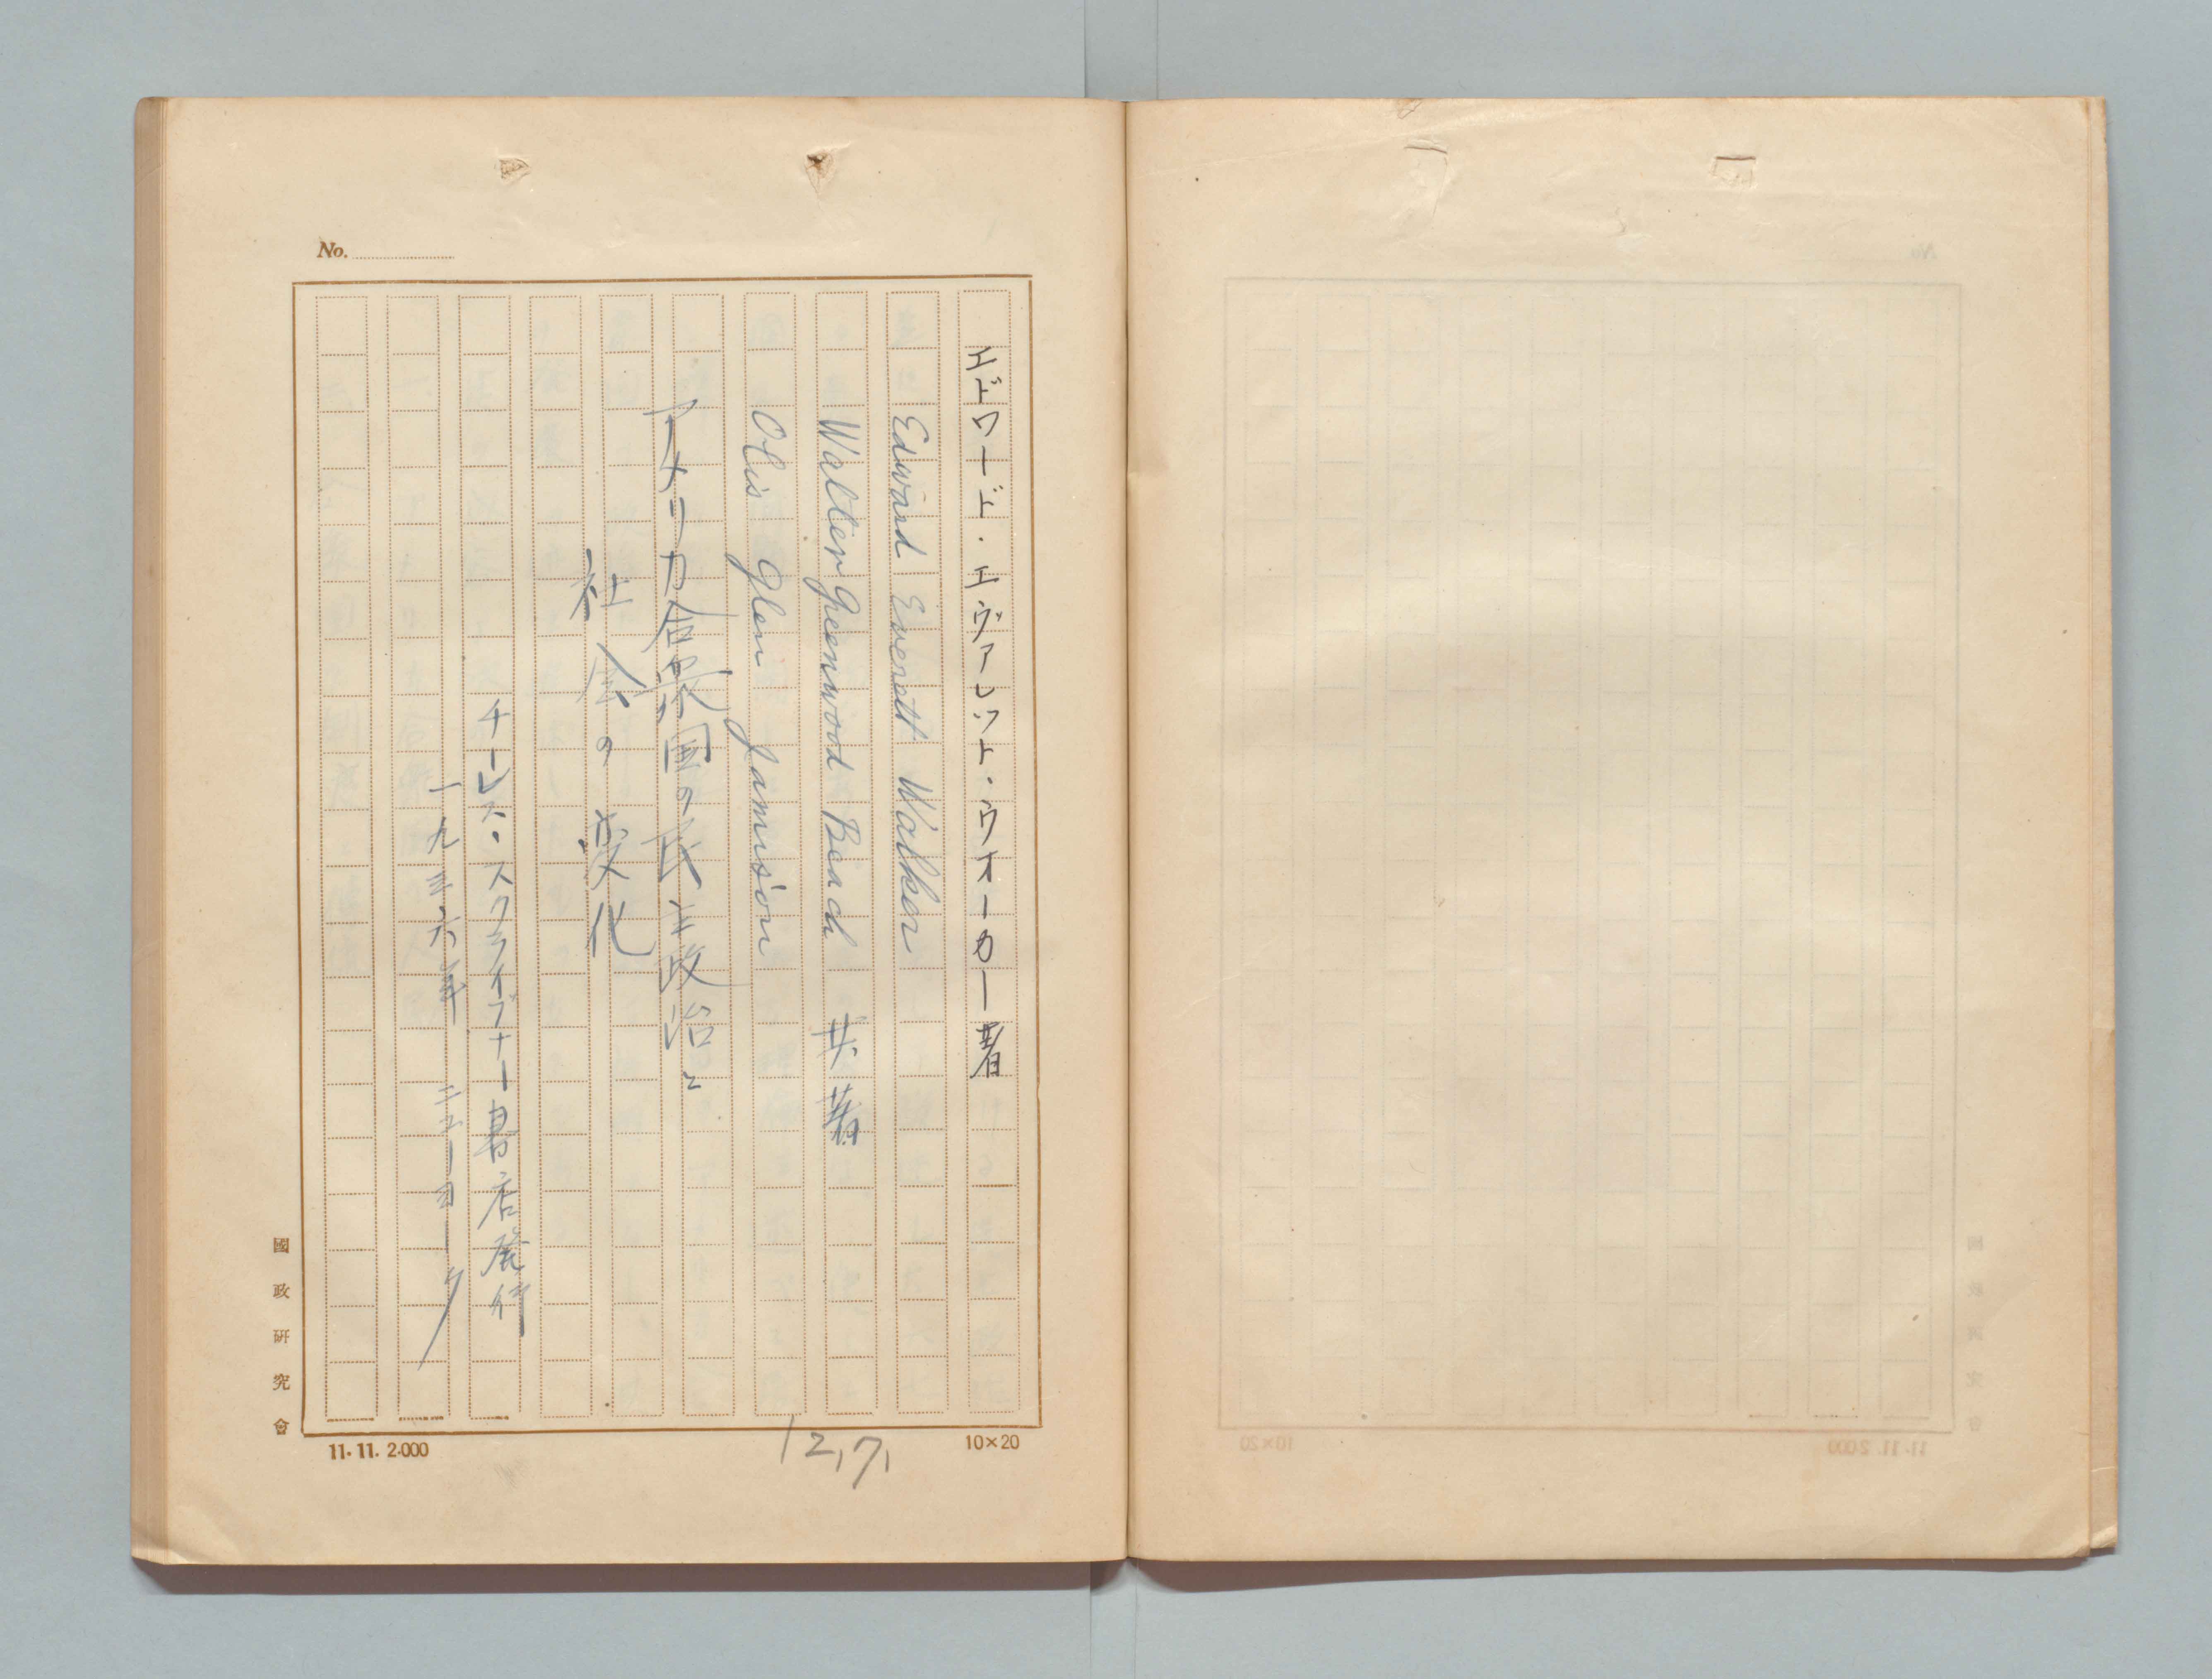 No.
エドワード・エヴァレット・ウオーカー著
Edward Everett Walker
Walter Greenwood Beach 共著
Olis Glen Jamison
アメリカ合衆国の民主政治と
社会の変化
チーレス・スクライブナー書店発行
一九三六年 ニューヨーク
國政研究會
11.11.2.000
12,7,
10×20